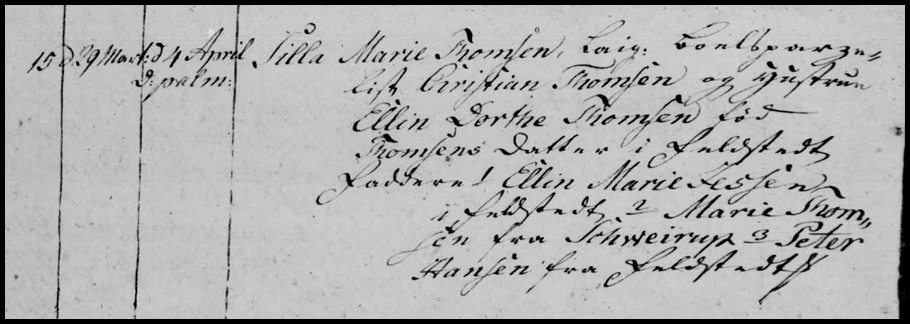 15 d 29 Mart: d 4 April Silla Marie Thomsen, Boelsparze-
D: palm: list Christian Thomsen og Hustrue
Ellin Dorthe Thomsen fød
Thomsens Datter i Feldstedt
Faddere 1 Ellin Marie Jessen
i Feldstedt 2 Marie Thom-
sen fra Schweirup 3 Peter
Hansen fra Feldstedt